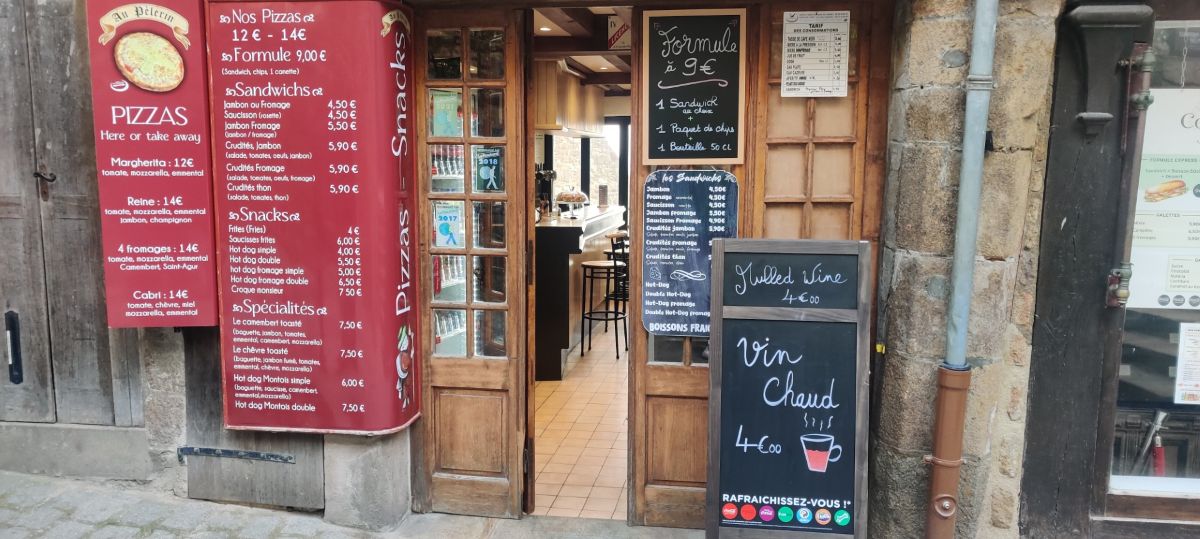 Au Pèlerin
PIZZAS
Here or take away
Margherita : 12€
tomate, mozzarella, emmental
Reine : 14€
tomate, mozzarella, emmental
jambon, champignon
4 fromages : 14€
tomate, mozzarella, emmental
Camembert, Saint-Agur
Cabri : 14€
tomate, chèvre, miel
mozzarella, emmental
Nos Pizzas
12 € - 14€
Formule 9,00 €
(Sandwich, chips, 1 canette)
Sandwichs
Jambon ou Fromage 4,50 €
Saucisson (rosette) 4,50 €
Jambon Fromage 5,50 €
(jambon / fromage)
Crudités, Jambon 5,90 €
(salade, tomates, oeufs, jambon)
Crudités Fromage 5,90 €
(salade, tomates, oeufs, fromage)
Crudités thon 5,90 €
(salade, tomates, thon)
Snacks
Frites (Fries) 4 €
Saucisses frites 6,00 €
Hot dog simple 4,00 €
Hot dog double 5,50 €
Hot dog fromage simple 5,00 €
Hot dog fromage double 6,50 €
Croque monsieur 7 50 €
Spécialités
Le camembert toasté 7,50 €
(baguette, jambon, tomates,
emmental, camembert, mozzarella)
Le chèvre toasté 7,50 €
(baguette, jambon fumé, tomates,
emmental, chèvre, mozzarella)
Hot dog Montois simple 6,00 €
(baguette, saucisse, camembert,
emmental, mozzarella)
Hot dog Montois double 7,50 €
Pizzas - Snacks
2018
2017
Formule
à 9€
1 Sandwich
au choix
+
1 Paquet de chips
+
1 Bouteille 50 CL
les Sandwichs
Jambon 4,50€
Fromage 4,50€
Saucisson 4,50€
Jambon Fromage 5,50€
Saucisson Fromage 5,50€
Crudités jambon 5,90€
Crudités fromage 5,90€
Crudités thon 5,90€
Hot-Dog
Double Hot-Dog
Hot-Dog fromage
Double Hot-Dog fromage
BOISSONS FRAI
TARIF
DES CONSOMMATIONS
Mulled Wine
4€00
Vin
Chaud
4€00
RAFRAICHISSEZ-VOUS !*
FORMULE EXPRESS
GALETTES